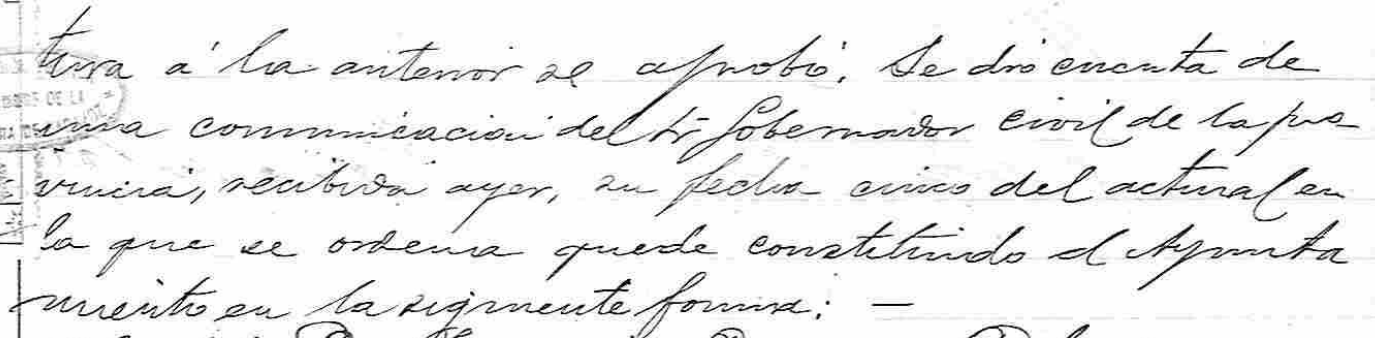 tura á la anterior se aprobó. Se dió cuenta de
una comunicación del Sr Gobernador civil de la pro
vincia, recibida ayer, su fecha cinco del actual en
la que se ordena quede constituido el Ayunta
miento en la siguiente forma: —